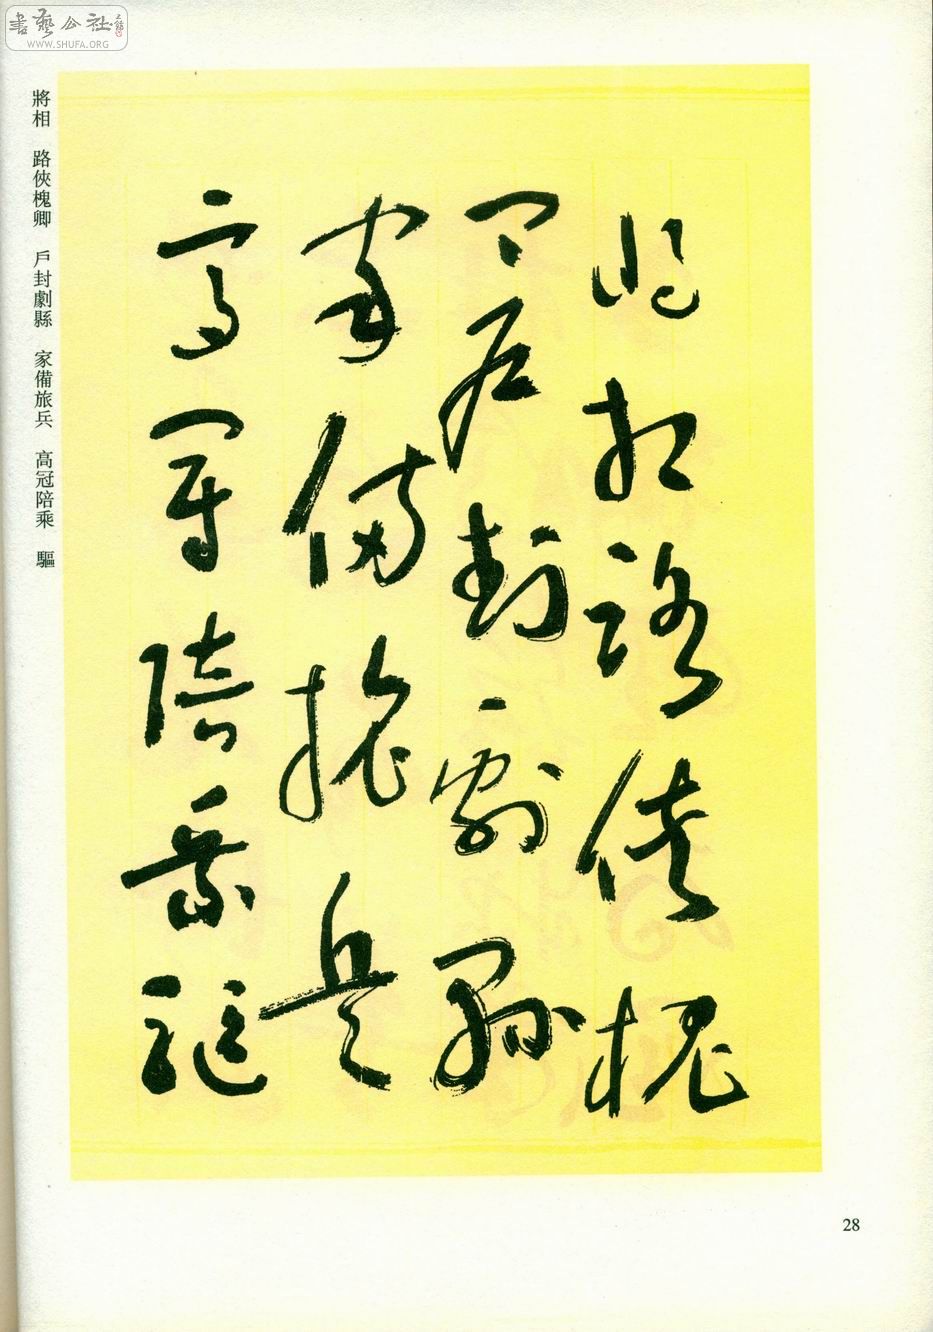 書藝公社
WWW.SHUFA.ORG
將相路俠槐
卿戶封劇縣
家備旅兵
高冠陪乘驅
將相 路俠槐卿 戶封劇縣 家備旅兵 高冠陪乘 驅
28